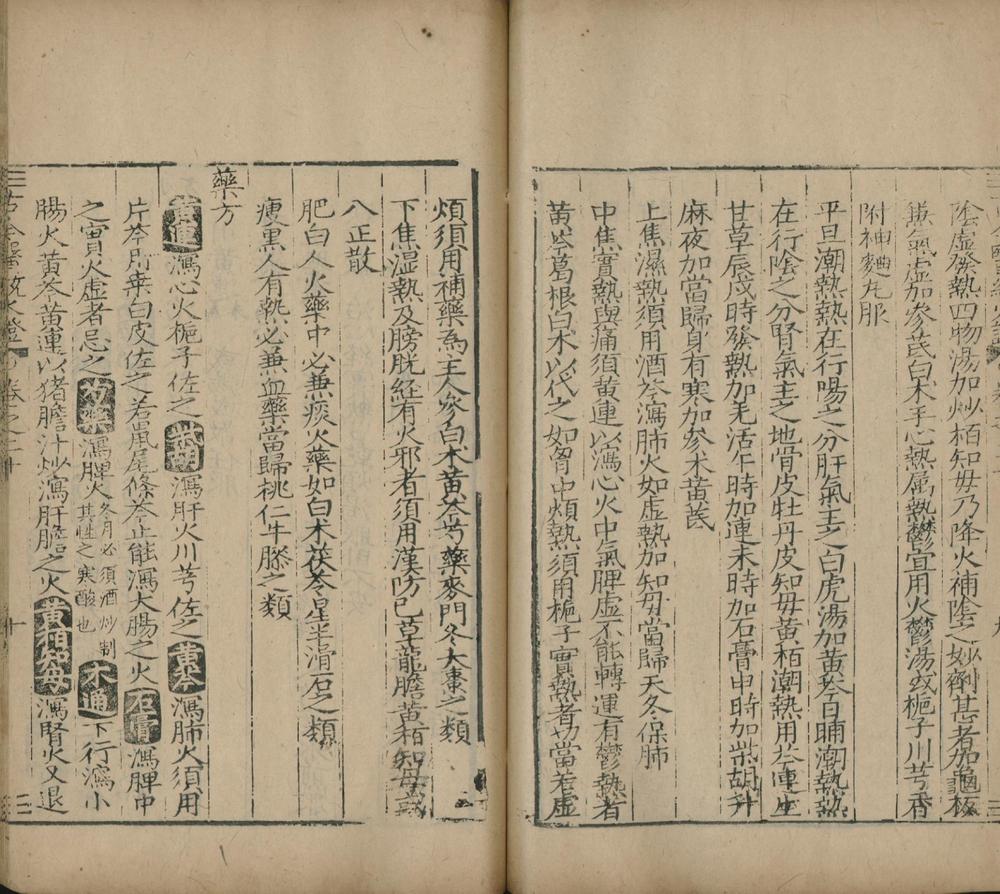 陰虛發熱四物湯加炒栢知毋乃降火補陰之妙劑甚者加龜板
兼氣虛加參芪白术手心熱属熱鬱宜用火鬱湯或梔子川芎香
附神麯丸服
平旦潮熱熱在行陽之分肝氣主之白虎湯加黄芩日晡潮熱熱
在行陰之分腎氣主之地骨皮牡丹皮知毋黄栢潮熱用芩連生
甘草辰戌時發熱加羌活午時加連未時加石膏申時加柴胡升
麻夜加當歸身有寒加參术黄芪
上焦濕熱須用酒芩瀉肺火如虛熱加知毋當歸天冬保肺
中焦實熱與痛須黄連以瀉心火中氣脾虛不能轉運有鬱熱者
黄芩葛根白术以代之如胷中煩熱須用梔子實熱者切當若虛
煩須用補藥為主人參白术黄芩芍藥麥門冬大棗之類
下焦濕熱及膀胱経有火邪者須用漢防已草龍膽黄栢知母或
八正散
肥白人火藥中必兼痰火藥如白术茯苓星半滑石之類
瘦黒人有熱必兼血藥當歸桃仁牛膝之類
藥方
黄連瀉心火梔子佐之柴胡瀉肝火川芎佐之黄芩瀉肺火須用
片芩用桒白皮佐之若鼠尾條芩止能瀉大腸之火石膏瀉脾中
之實火虛者忌之芍藥瀉脾火冬月必須酒炒制其性之寒酸也木通下行瀉小
腸火黄芩黄連以猪膽汁炒瀉肝膽之火黄栢知母瀉腎火又退
卷之二十
十